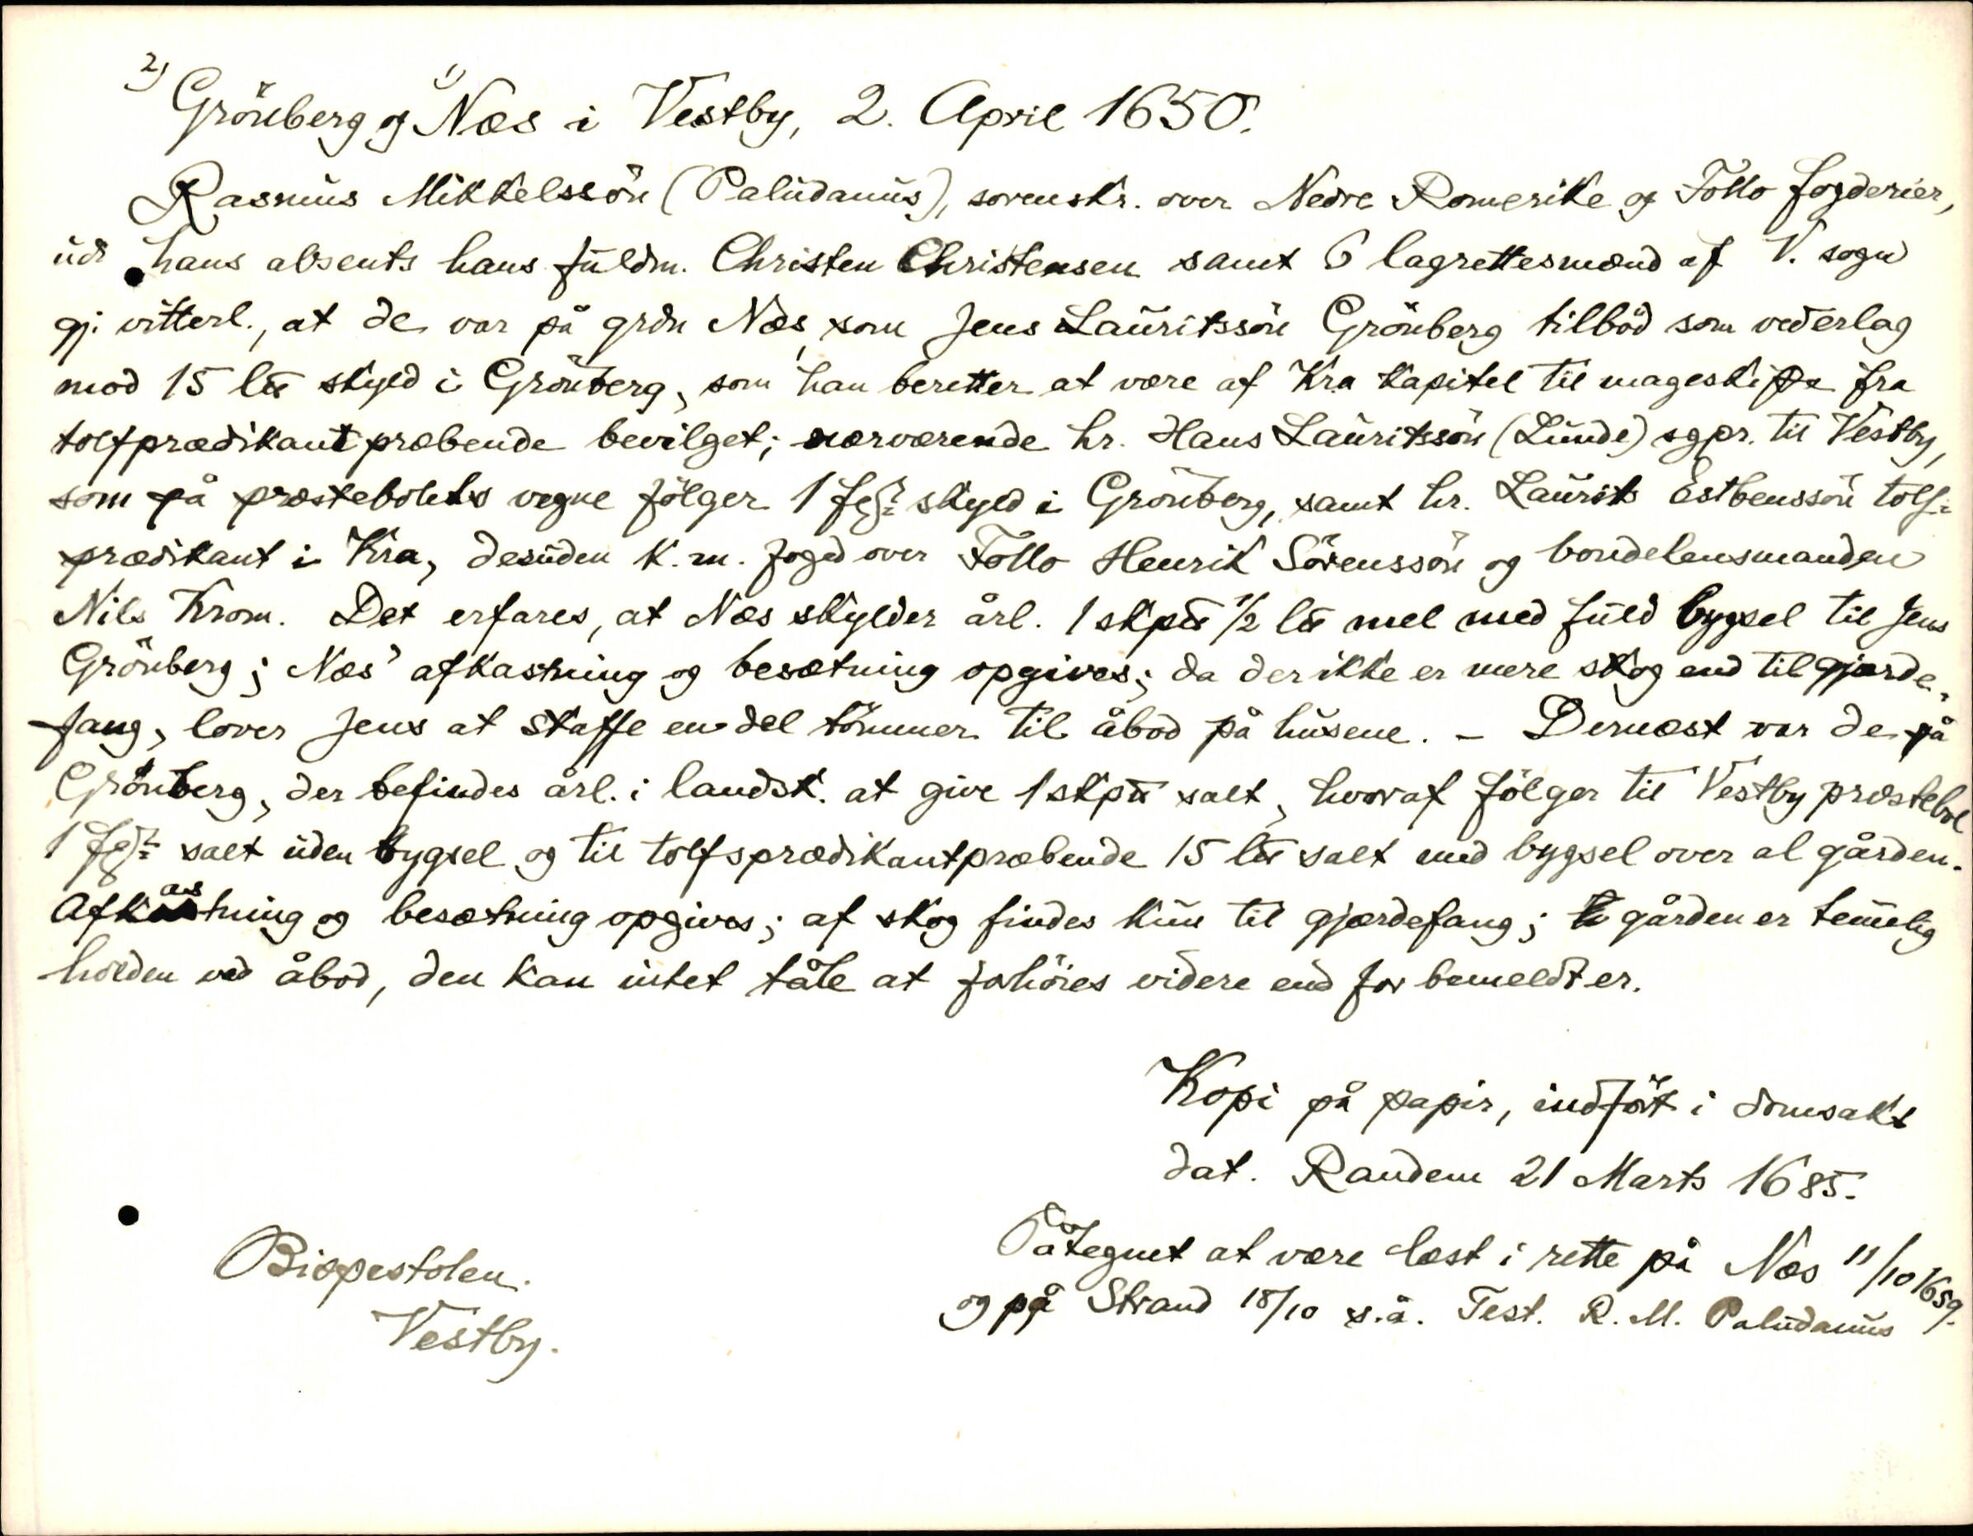 2) Grönberg og 1) Næs i Vestby, 2. April 1650.
Rasmus Mikkelssön (Paludanus), sorenskr. over Nedre Romerike og Follo fogderier,
udi hans absents hans fuldm. Christen Christensen samt 6 lagrettesmænd af V. sogn
gj. vitterl., at de var på grdn Næs, som Jens Lauritssön Grönberg tilböd som vederlag
mod 15 l℔ skyld i Grönberg, som han beretter at være af Kra kapitel til mageskifte fra
tolfprædikantpræbende bevilget; nærværende hr. Hans Lauritssön (Lunde) sgpr. til Vestby,
som på præstebolets vegne fölger 1 fjr skyld i Grönberg, samt hr. Laurits Estbenssön tolf-
prædikant i Kra, desuden k. m. foged over Follo Henrik Sörenssön og bondelensmanden
Nils Krom. Det erfares, at Næs skylder årl. 1 skp℔ 1/2 l℔ mel med fuld bygsel til Jens
Grönberg; Næs' afkastning og besætning opgives; da der ikke er mere skog end til gjærde-
fang, lover Jens at skaffe en del tömmer til åbod på husene. – Dernæst var de på
Grönberg, der befindes årl. i landsk. at give 1 skp℔ salt, hvoraf fölger til Vestby præstebol
1 fjr salt uden bygsel og til tolfsprædikantpræbende 15 l℔ salt med bygsel over al gården.
Afkastning og besætning opgives; af skog findes kun til gjærdefang; gården er temelig
holden ved åbod, den kan intet tåle at forhöies videre end forbemeldt er.
Kopi på papir, indfört i domsakt
dat. Randem 21 Marts 1685.
Påtegnet at være læst i rette på Næs 11/10 1659.
og på Strand 18/10 s.å. Test. R. M. Paludanus
Bispestolen.
Vestby.